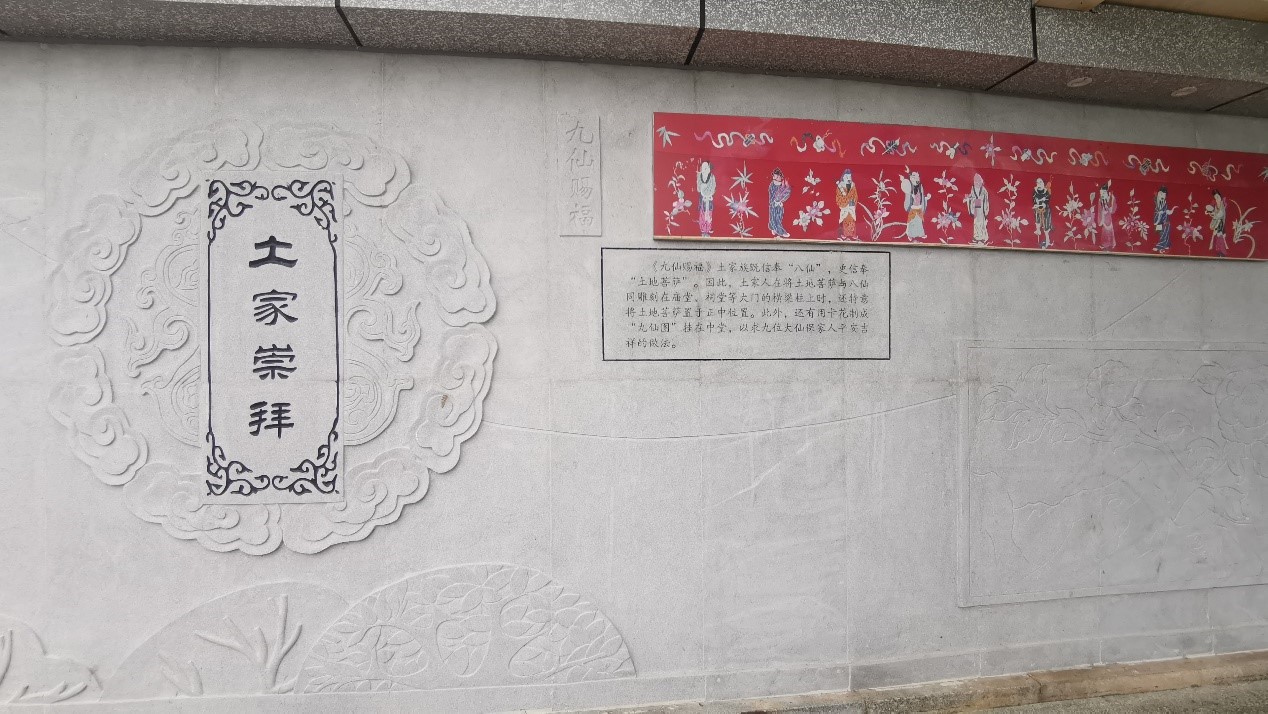 土家崇拜
九仙赐福
《九仙赐福》土家族既信奉“八仙”，更信奉
“土地菩萨”。因此，土家人在将土地菩萨与八仙
同雕刻在庙堂、祠堂等大门的横梁柱上时，还特意
将土地菩萨置于正中位置。此外，还有用卡花制成
“九仙图”挂在中堂，以求九位大仙保家人平安吉
祥的做法。